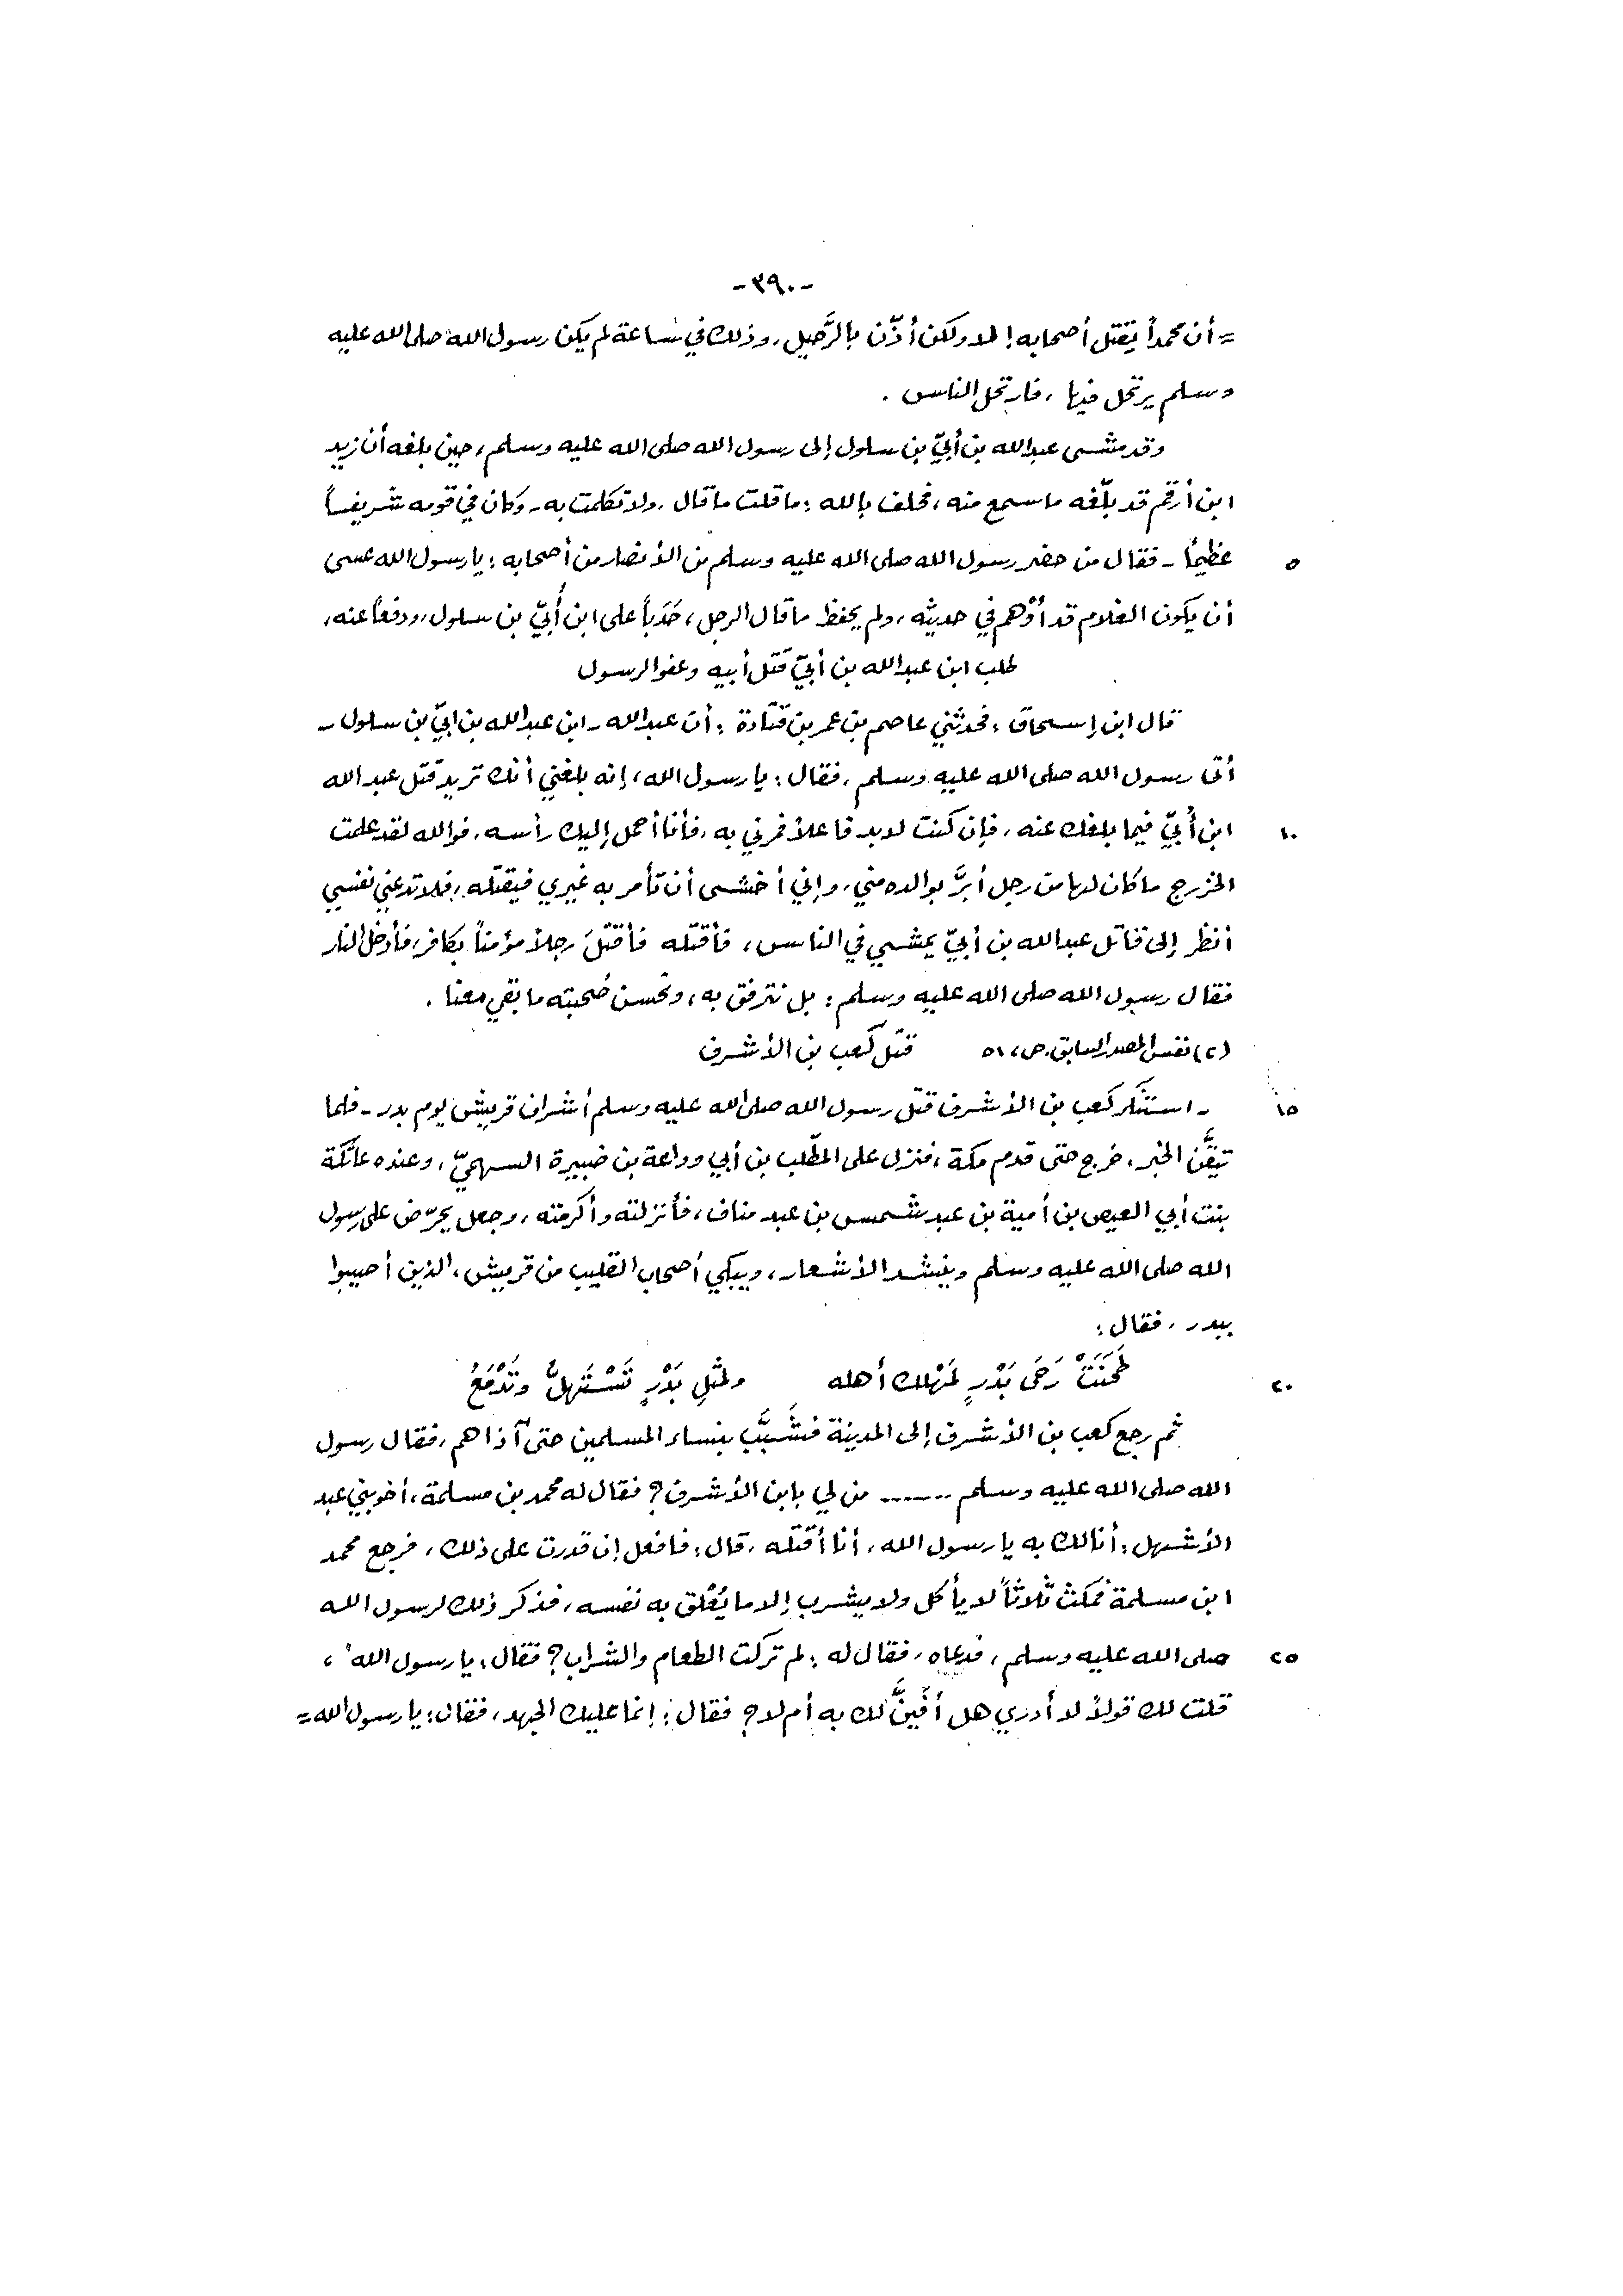 -٣٩٠-
= أن محمداً يقتل أصحابه! لا ولكن أذّن بالرَّحيل، وذلك في ساعة لم يكن رسول الله صلى الله عليه
وسلم يرتحل فيها، فارتحل الناس .
وقد مشى عبدالله بن أبيّ بن سلول إلى رسول الله صلى الله عليه وسلم، حين بلغه أن زيد
ابن أرقم قد بلّغه ما سمع منه، فحلف بالله: ما قلت ما قال، ولا تكلمت به - وكان في قومه شريفاً
٥ عظيماً - فقال من حضر رسول الله صلى الله عليه وسلم من الأنصار من أصحابه: يا رسول الله عسى
أن يكون الغلام قد أوْهم في حديثه، ولم يحفظ ما قال الرجل، حَدَباً على ابن أُبيّ بن سلول، ودفعاً عنه،
طلب ابن عبدالله بن أبيّ قتل أبيه وعفو الرسول
قال ابن إسحاق: فحدثني عاصم بن عمر بن قتادة: أن عبدالله - ابن عبدالله بن ابيّ بن سلول -
أتى رسول الله صلى الله عليه وسلم، فقال: يا رسول الله، إنه بلغني أنك تريد قتل عبد الله
١٠ ابن أُبيّ فيما بلغك عنه، فإن كنت لابد فاعلاً فمرني به، فأنا أحمل إليك رأسه، فوالله لقد علمت
الخزرج ما كان لها من رجل أبرَّ بوالده مني، وإني أخشى أن تأمر به غيري فيقتله، فلا تدعني نفسي
أنظر إلى قاتل عبدالله بن أبيّ يمشي في الناس، فأقتله فأقتلَ رجلاً مؤمناً بكافر، فأدخل النار
فقال رسول الله صلى الله عليه وسلم: بل نترفق به، ونحسن صُحبته ما بقي معنا .
(٢) نفس المصدر السابق، ص، ٥١ قتل كعب بن الأشرف
١٥ - استنكر كعب بن الأشرف قتل رسول الله صلى الله عليه وسلم أشراف قريش يوم بدر - فلما
تيقَّن الخبر، خرج حتى قدم مكة، فنزل على المطّلب بن أبي وداعة بن ضبيرة السهميّ، وعنده عاتكة
بنت أبي العيص بن أمية بن عبد شمس بن عبد مناف، فأنزلته وأكرمته، وجعل يحرّض على رسول
الله صلى الله عليه وسلم وينشد الأشعار، ويبكي أصحاب القليب من قريش، الذين أصيبوا
ببدر، فقال:
٢٠ طَحَنَتْ رَحَى بَدْرٍ لمَهْلك أهله ولمثلِ بَدْرٍ تَسْتَهلُّ وتَدْمَعُ
ثم رجع كعب بن الأشرف إلى المدينة فشَبَّب بنساء المسلمين حتى آذاهم، فقال رسول
الله صلى الله عليه وسلم ...... من لي بابن الأشرف؟ فقال له محمد بن مسلمة، أخو بني عبد
الأشهل: أنا لك به يا رسول الله، أنا أقتله، قال: فافعل إن قدرت على ذلك، فرجع محمد
ابن مسلمة فمكث ثلاثاً لا يأكل ولا يشرب إلا ما يُعْلق به نفسه، فذكر ذلك لرسول الله
٢٥ صلى الله عليه وسلم، فدعاه، فقال له: لم تركت الطعام والشراب؟ فقال: يا رسول الله،
قلت لك قولاً لا أدري هل أفينَّ لك به أم لا؟ فقال: إنما عليك الجهد، فقال: يا رسول الله =